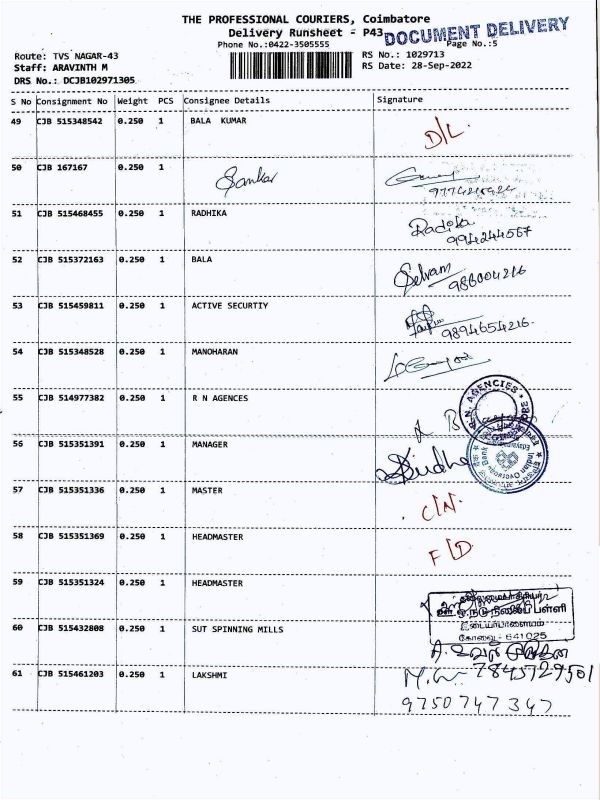 THE PROFESSIONAL COURIERS, Coimbatore
Delivery Runsheet - P43
DOCUMENT DELIVERY
Phone No.:0422-3505555
Page No.:5
Route: TVS NAGAR-43
RS No.: 1029713
Staff: ARAVINTH M
RS Date: 28-Sep-2022
DRS No.: DCJB102971305
S No Consignment No Weight PCS Consignee Details Signature
49 CJB 515348542 0.250 1 BALA KUMAR D/L
50 CJB 167167 0.250 1 Sankar
51 CJB 515468455 0.250 1 RADHIKA Radika
9942244567
52 CJB 515372163 0.250 1 BALA Selvam
986004216
53 CJB 515459811 0.250 1 ACTIVE SECURTIY
9894654216
54 CJB 515348528 0.250 1 MANOHARAN
55 CJB 514977382 0.250 1 R N AGENCES
AGENCIES
56 CJB 515351391 0.250 1 MANAGER Sudha
Indian Overseas Bank
57 CJB 515351336 0.250 1 MASTER C/N.
58 CJB 515351369 0.250 1 HEADMASTER F/D.
59 CJB 515351324 0.250 1 HEADMASTER
தலைமையாசிரியர்
நடுநிலைப் பள்ளி
இடையர்பாளையம்
கோவை - 641025
60 CJB 515432808 0.250 1 SUT SPINNING MILLS
61 CJB 515461203 0.250 1 LAKSHMI 7845729501
9750747347